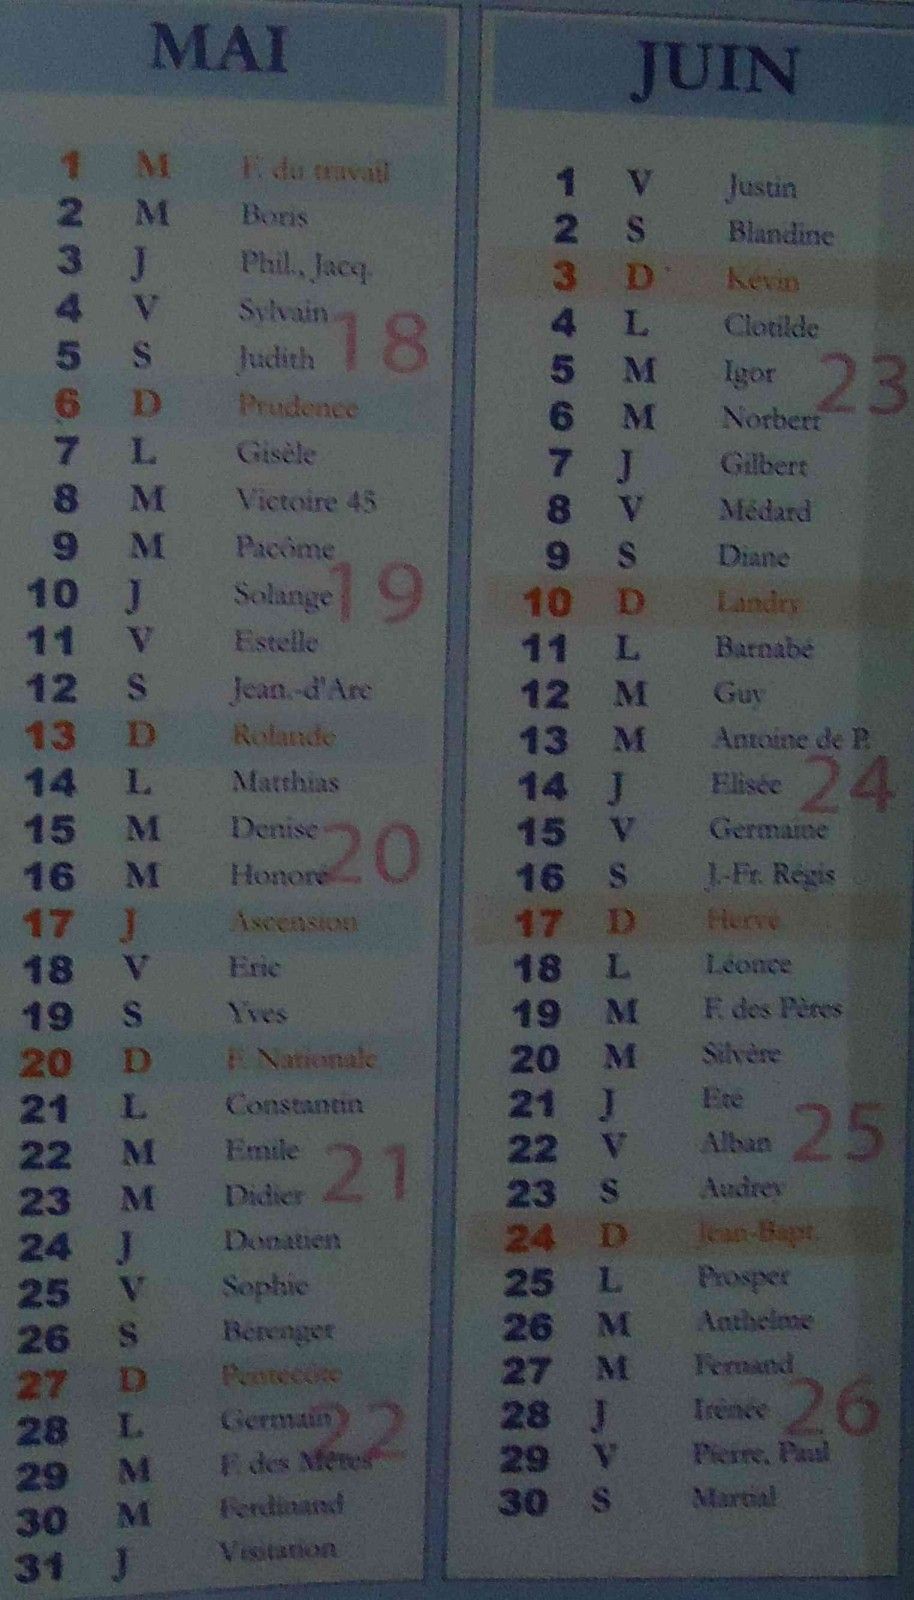 MAI
1 M F. du travail
2 M Boris
3 J Phil., Jacq.
4 V Sylvain
18
5 S Judith
6 D Prudence
7 L Gisèle
8 M Victoire 45
9 M Pacôme
10 J Solange
19
11 V Estelle
12 S Jean.-d'Arc
13 D Rolande
14 L Matthias
15 M Denise
20
16 M Honoré
17 J Ascension
18 V Eric
19 S Yves
20 D F. Nationale
21 L Constantin
22 M Emile
21
23 M Didier
24 J Donatien
25 V Sophie
26 S Bérenger
27 D Pentecôte
28 L Germain
22
29 M F. des Mères
30 M Ferdinand
31 J Visitation
JUIN
1 V Justin
2 S Blandine
3 D Kévin
4 L Clotilde
5 M Igor
23
6 M Norbert
7 J Gilbert
8 V Médard
9 S Diane
10 D Landry
11 L Barnabé
12 M Guy
13 M Antoine de P.
14 J Elisée
24
15 V Germaine
16 S J.-Fr. Régis
17 D Hervé
18 L Léonce
19 M F. des Pères
20 M Silvère
21 J Ete
22 V Alban
25
23 S Audrey
24 D Jean-Bapt.
25 L Prosper
26 M Anthelme
27 M Fernand
28 J Irénée
26
29 V Pierre, Paul
30 S Martial